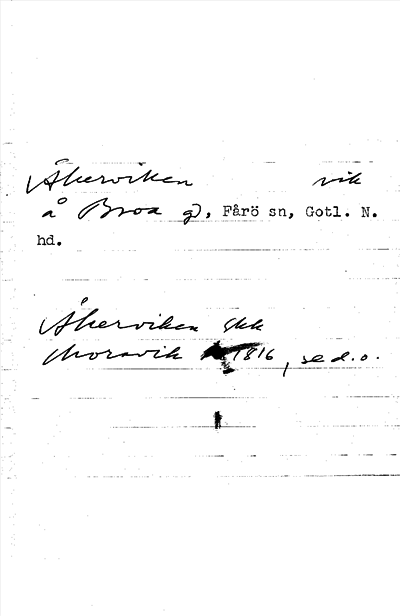 Åkerviken vik
å Broa g), Fårö sn, Gotl. N.
hd.
Åkerviken Ekk
Moravik 1816, se d.o.